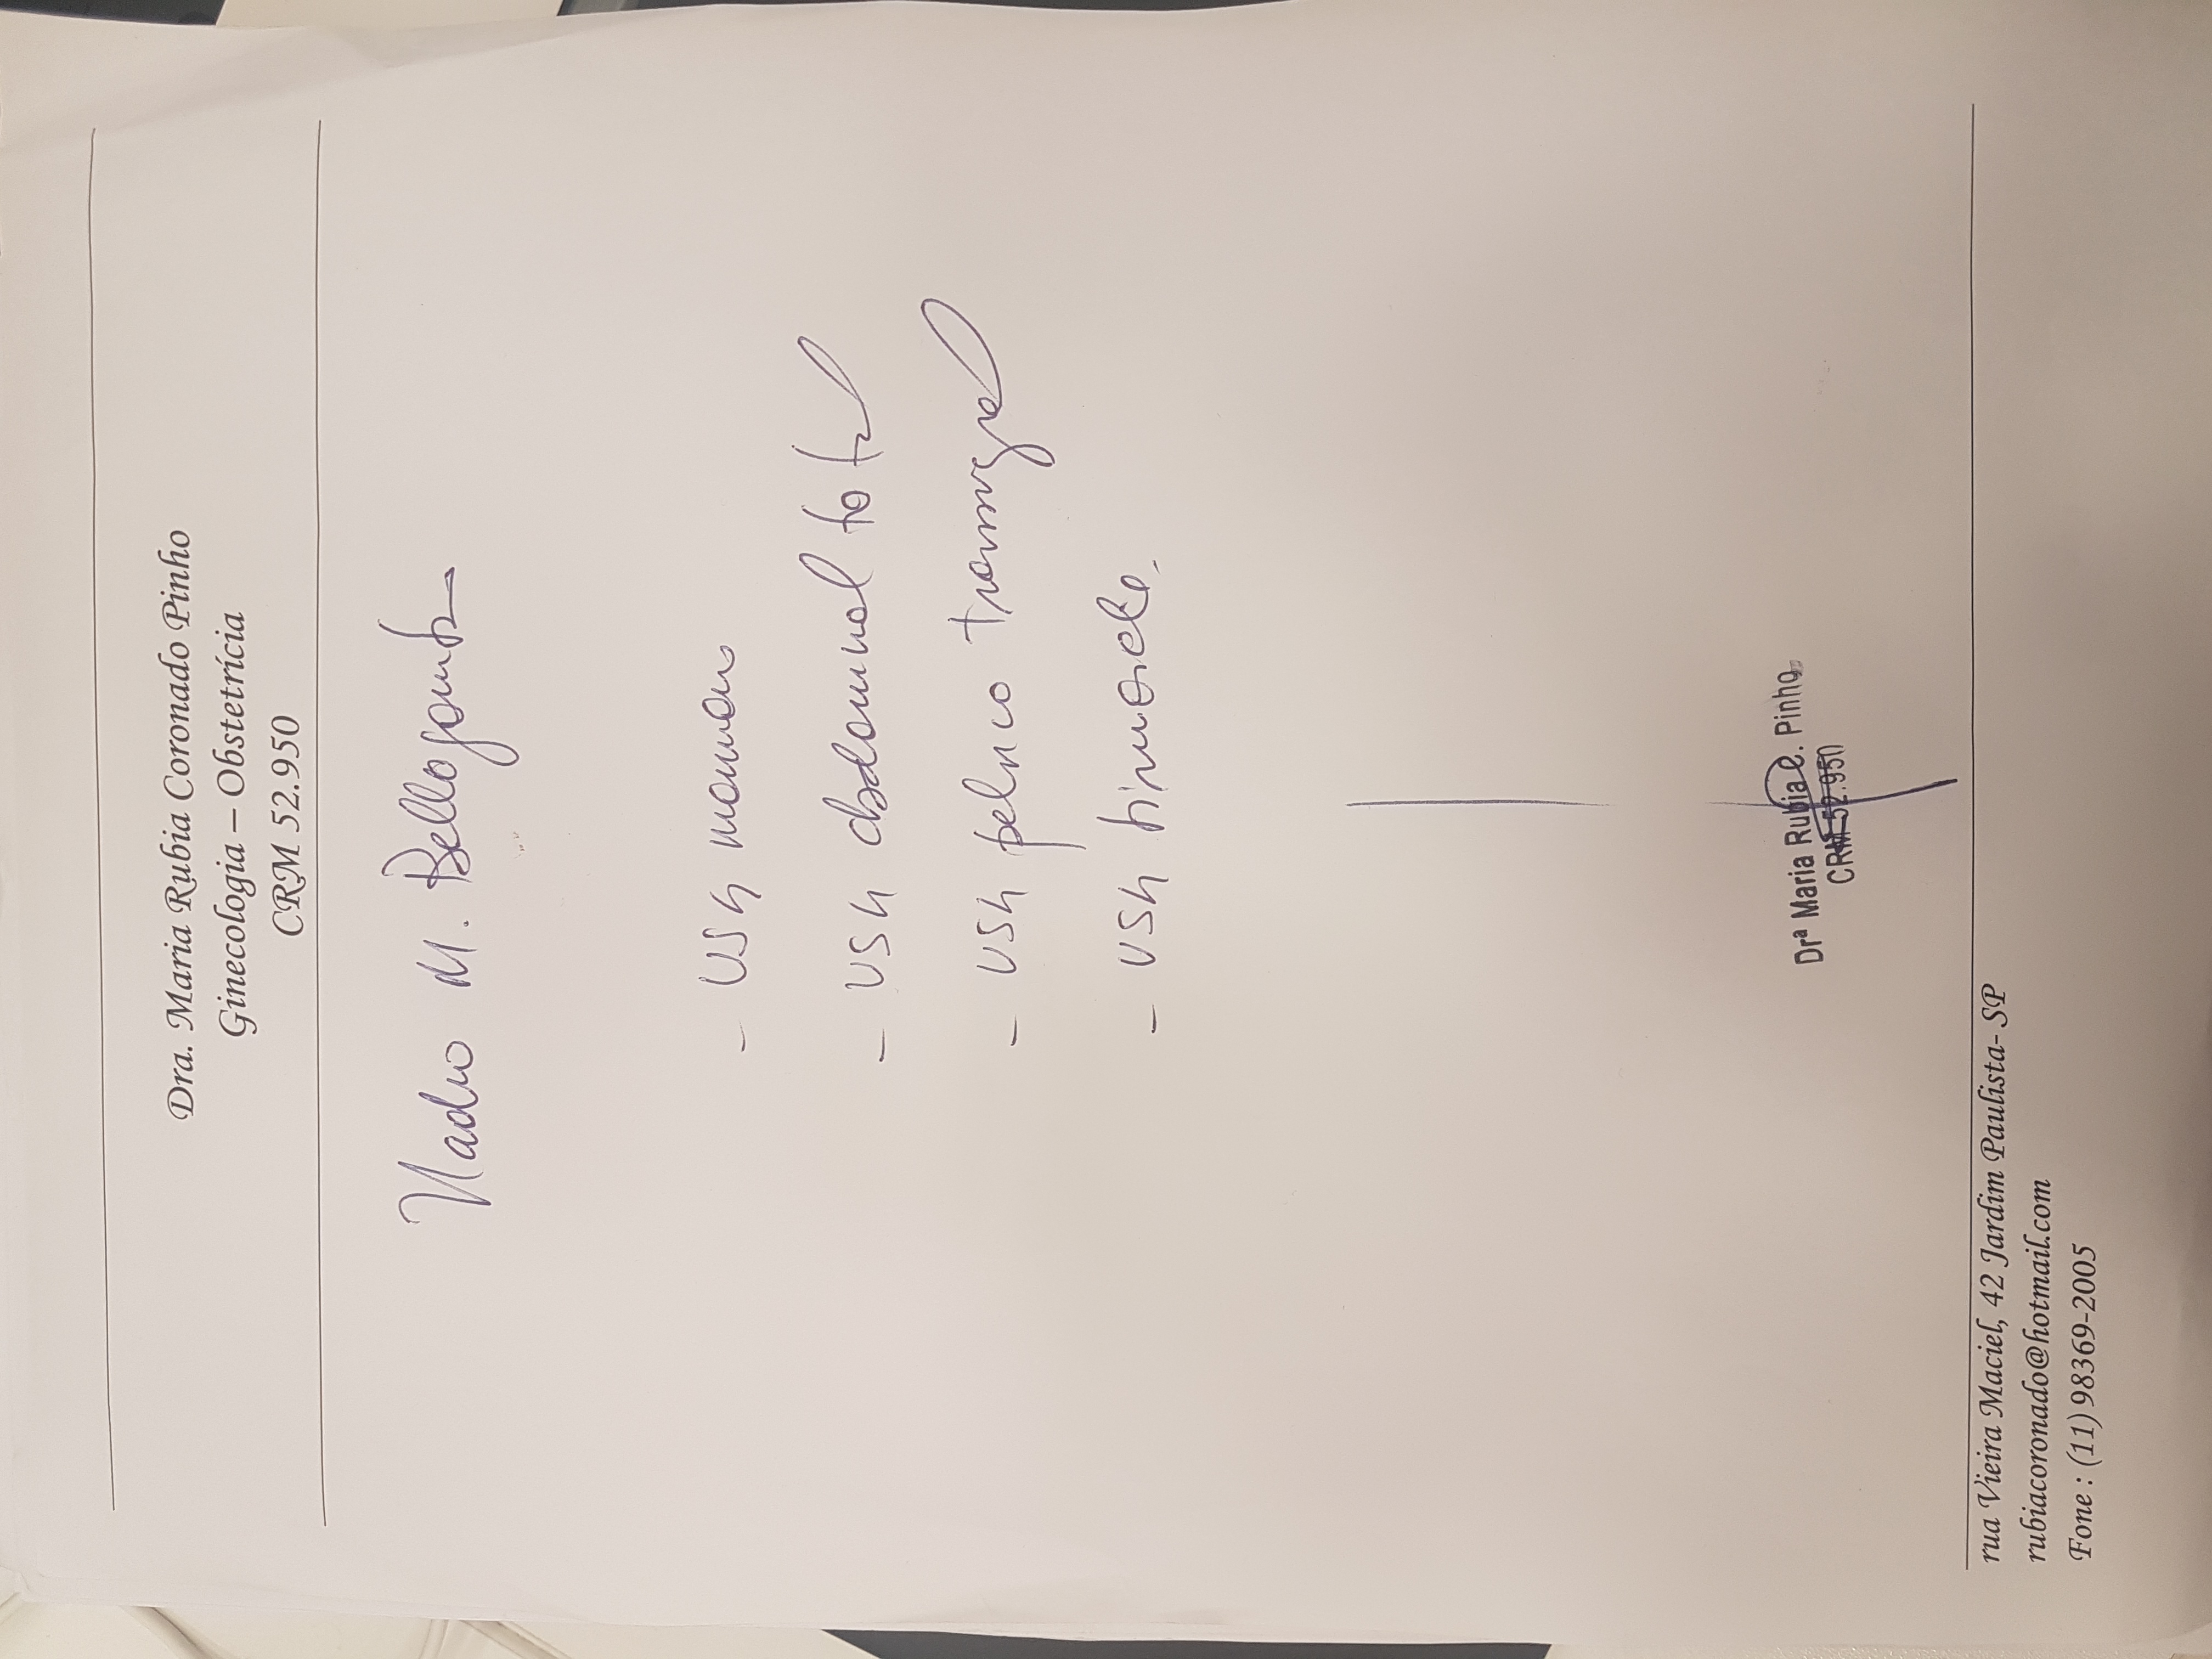 Dra. Maria Rubia Coronado Pinho
Ginecologia – Obstetrícia
CRM 52.950
M.
- USG mamas
- USG abdominal total
- USG pelvico transvaginal
- USG tireoide
Drª Maria Rubia C. Pinho
CRM 52.950
rua Vieira Maciel, 42 Jardim Paulista- SP
rubiacoronado@hotmail.com
Fone : (11) 98369-2005